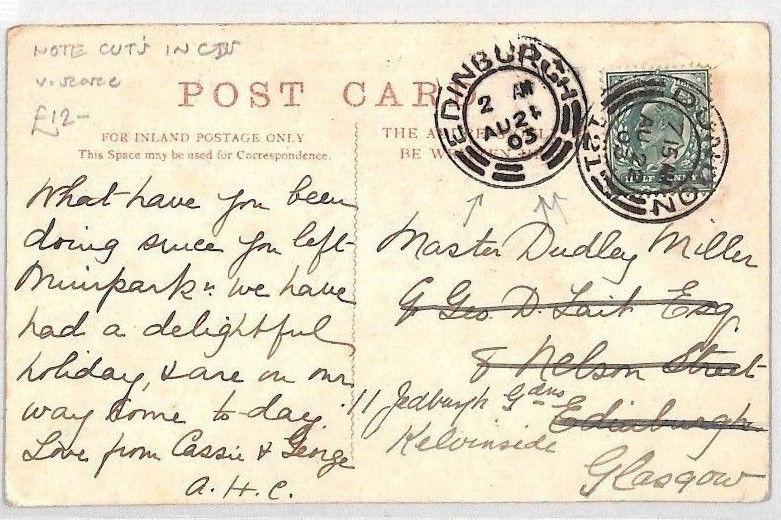 NOTE CUTS IN CDS
V. SCARCE
£12-
POST CARD
FOR INLAND POSTAGE ONLY
This Space may be used for Correspondence.
THE ADDRESS
BE WRITTEN
EDINBURGH
2 AM
AU 21
03
DUNOON
7 15
AU 22
03
121
HALFPENNY
What have you been
doing since you left
Muirpark? We have
had a delightful
holiday, & are on our
way home to-day.
Love from Cassie & George
A. H. C.
Master Dudley Miller
c/o Geo. D. Lait Esq
8 Nelson Street
Edinburgh
11 Jedburgh Gdns
Kelvinside
Glasgow